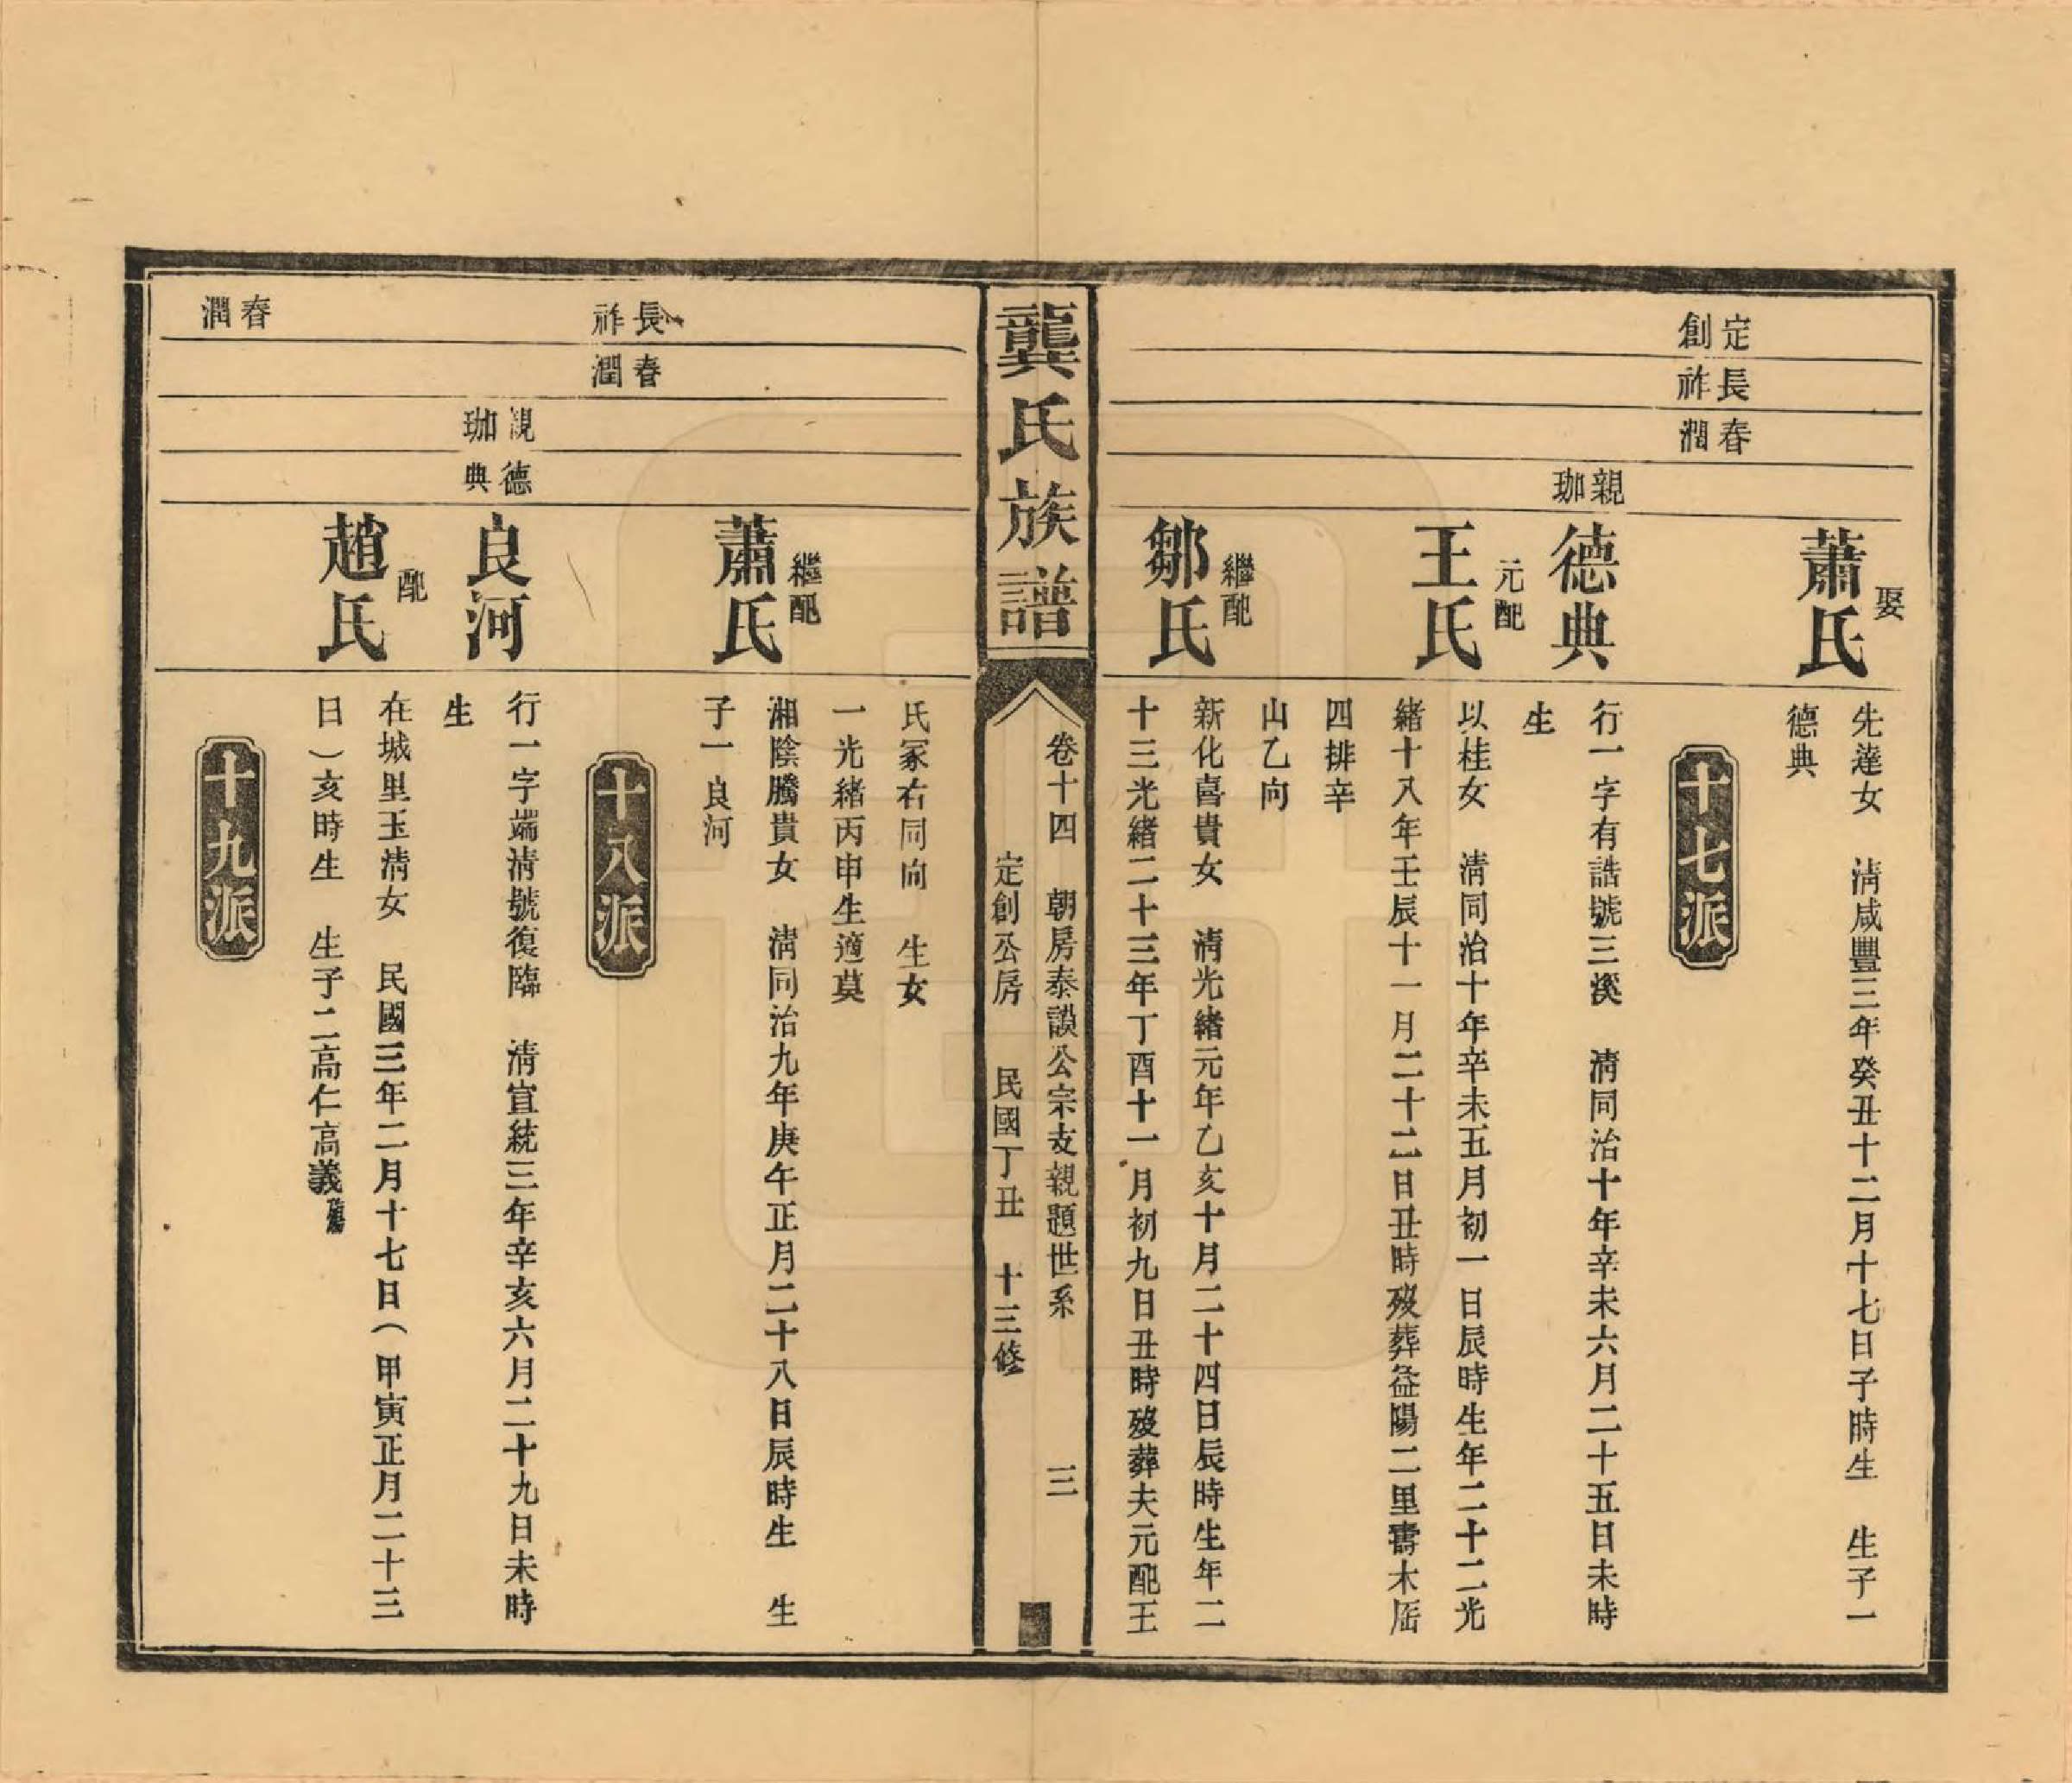 娶
蕭氏
先達女　淸咸豐三年癸丑十二月十七日子時生　生子一
德典
定創
長祚
春潤
十七派
親珈
德典
行一字有誥號三溪　淸同治十年辛未六月二十五日未時
生
元配
王氏
以桂女　淸同治十年辛未五月初一日辰時生年二十二光
緒十八年壬辰十一月二十二日丑時歿葬益陽二里
四排辛
山乙向
繼配
鄒氏
新化喜貴女　淸光緒元年乙亥十月二十四日辰時生年二
十三光緒二十三年丁酉十一月初九日丑時歿葬夫元配王
龔氏族譜
卷十四　朝房泰謨公宗支親題世系　三
定創公房　民國丁丑　十三修
氏冢右同向　生女
一光緒丙申生適莫
繼配
蕭氏
湘陰騰貴女　淸同治九年庚午正月二十八日辰時生　生
子一良河
長祚
春潤
十八派
親珈
德典
良河
行一字端淸號復臨　淸宣統三年辛亥六月二十九日未時
生
配
趙氏
在城里玉淸女　民國三年二月十七日（甲寅正月二十三
日）亥時生　生子二高仁高義
春潤
十九派